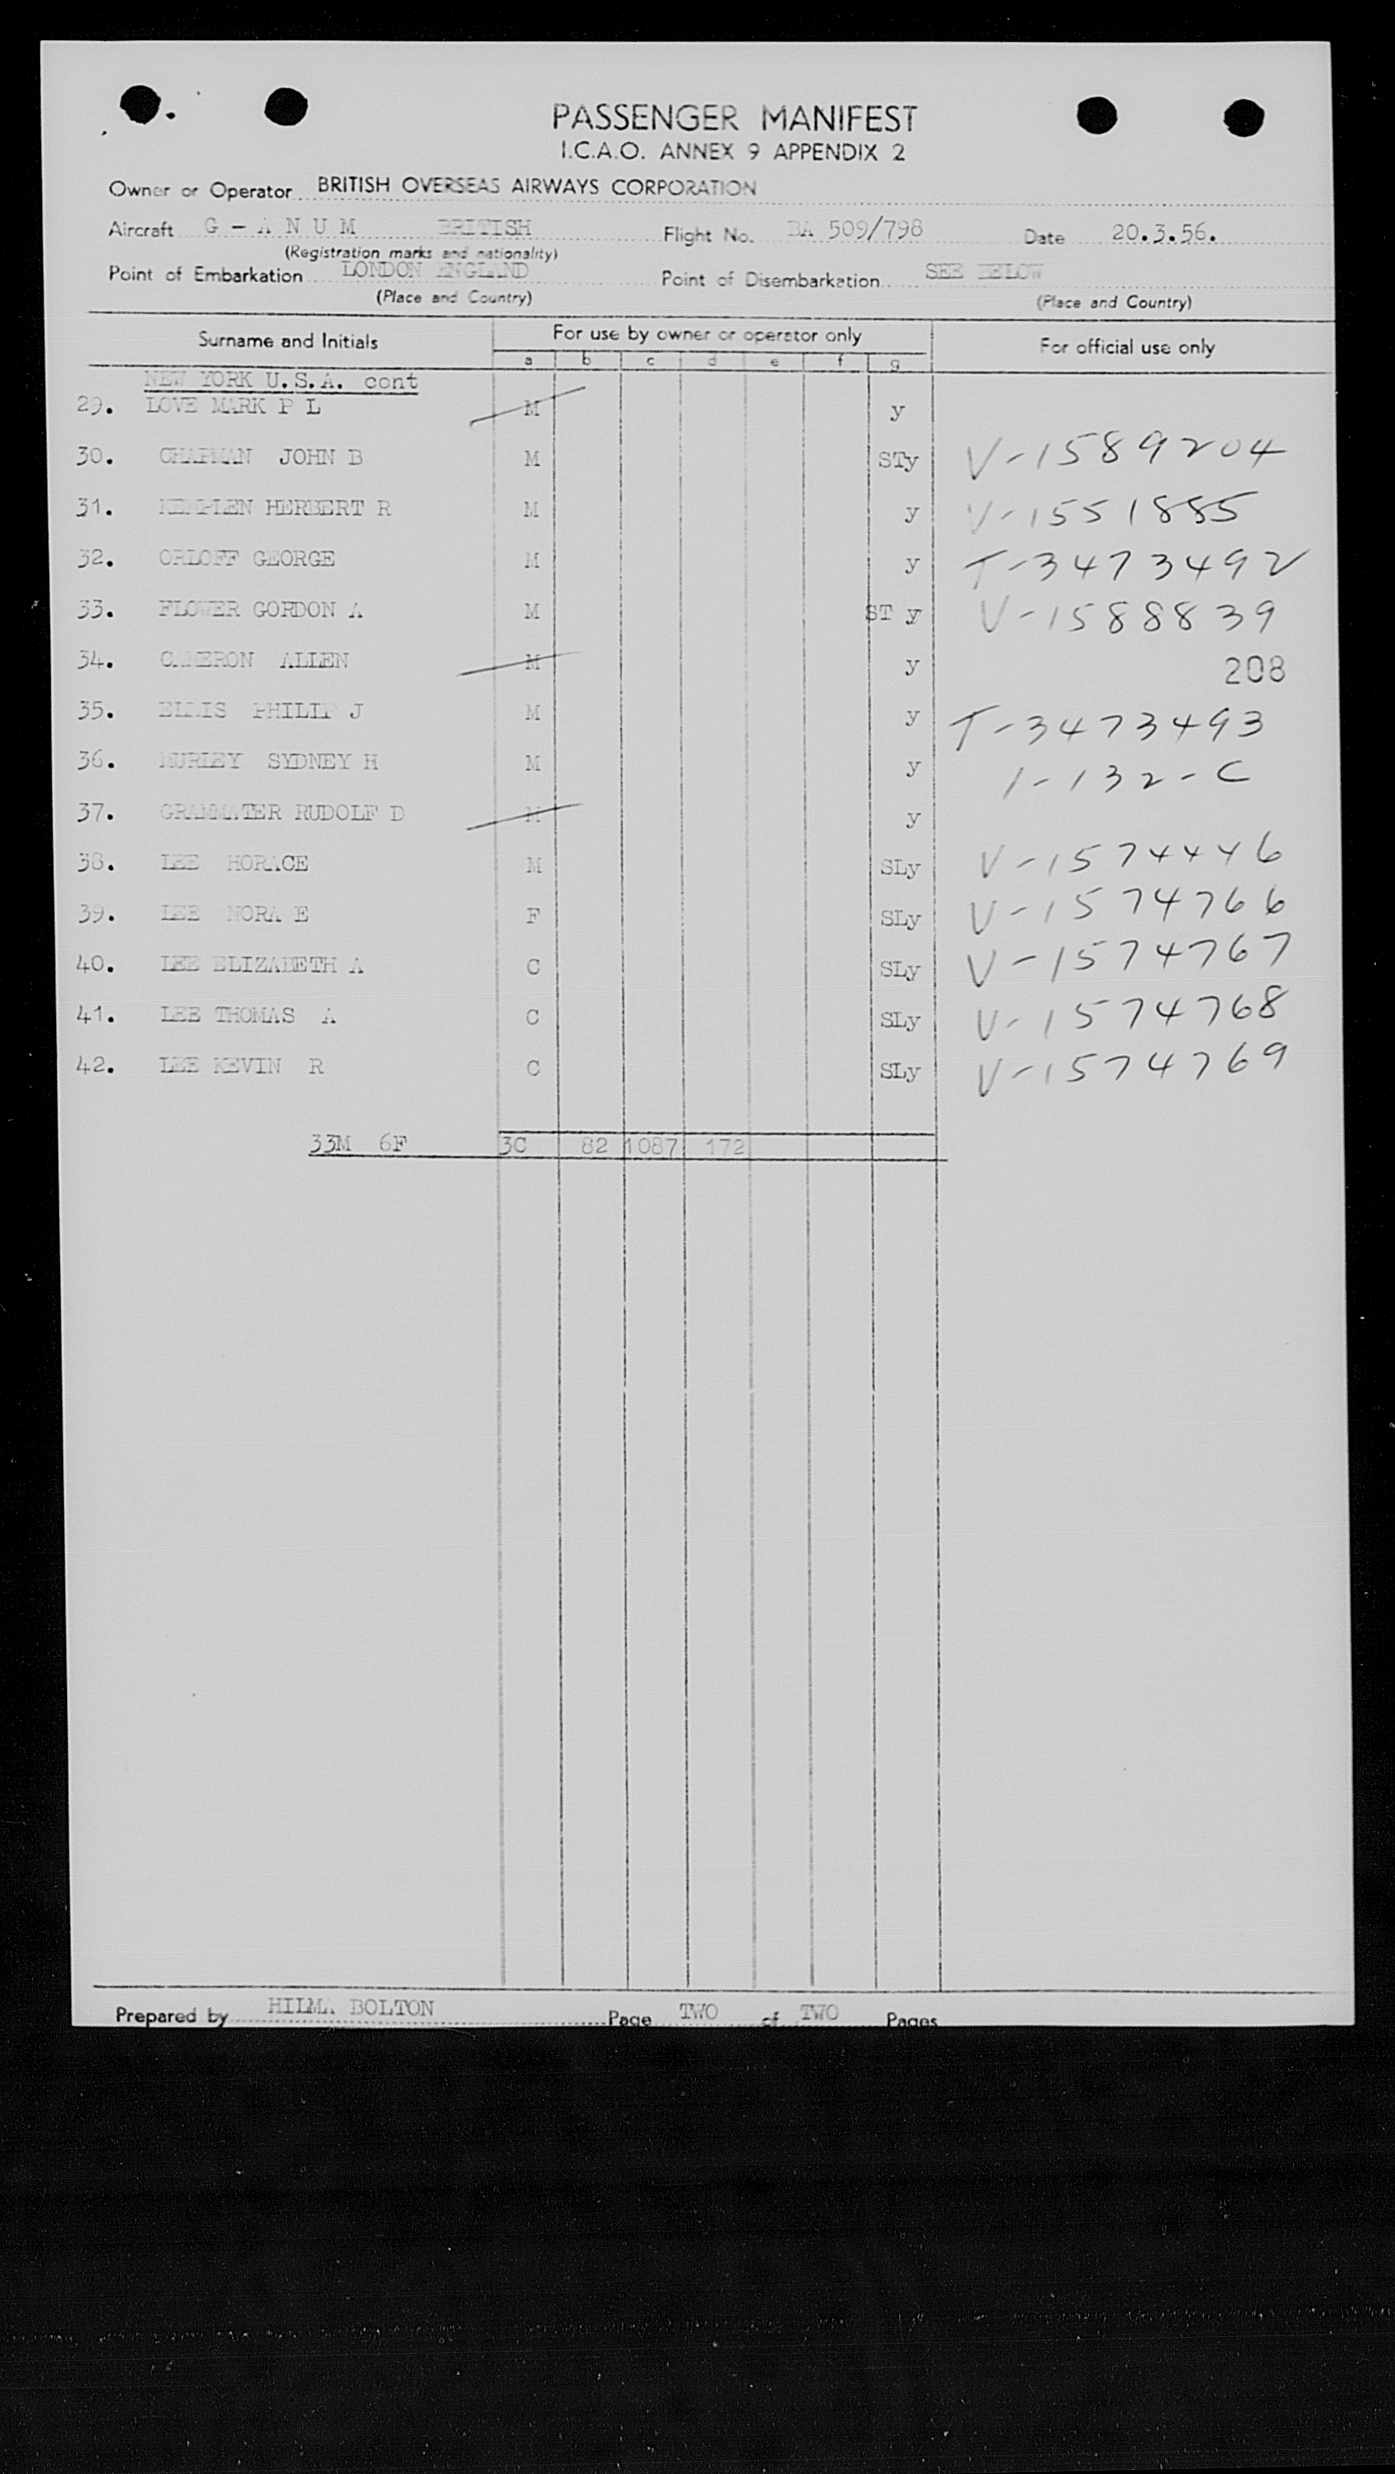 PASSENGER MANIFEST
I.C.A.O. ANNEX 9 APPENDIX 2
Owner or Operator BRITISH OVERSEAS AIRWAYS CORPORATION
Aircraft G - A N U M BRITISH Flight No. BA 509/798 Date 20.3.56.
(Registration marks and nationality)
Point of Embarkation LONDON ENGLAND Point of Disembarkation SEE BELOW
(Place and Country) (Place and Country)
Surname and Initials For use by owner or operator only For official use only
a b c d e f g
NEW YORK U.S.A. cont
29. LOVE MARK P L M y
30. CHAPMAN JOHN B M STy V-1589204
31. HERBERT R M y V-1551885
32. ORLOFF GEORGE M y T-3473492
33. FLOWER GORDON A M ST y V-1588839
34. CAMERON ALLEN M y 208
35. ELLIS PHILIP J M y T-3473493
36. SYDNEY H M y 1-132-C
37. GRAMMATER RUDOLF D M y
38. LEE HORACE M SLy V-1574446
39. LEE NORA E F SLy V-1574766
40. LEE ELIZABETH A C SLy V-1574767
41. LEE THOMAS A C SLy V-1574768
42. LEE KEVIN R C SLy V-1574769
33M 6F 3C 82 1087 172
Prepared by HILMA BOLTON Page TWO of TWO Pages